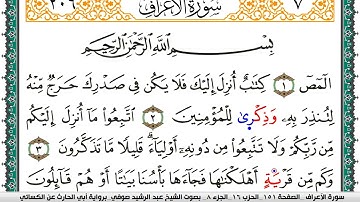 ٧ سُورَةُ الْأَعْرَافِ ٢٠٦
بِسْمِ اللَّهِ الرَّحْمَٰنِ الرَّحِيمِ
الٓمٓصٓ ١ كِتَٰبٌ أُنزِلَ إِلَيْكَ فَلَا يَكُن فِى صَدْرِكَ حَرَجٌ مِّنْهُ
لِتُنذِرَ بِهِۦ وَذِكْرَىٰ لِلْمُؤْمِنِينَ ٢ ٱتَّبِعُوا۟ مَآ أُنزِلَ إِلَيْكُم
مِّن رَّبِّكُمْ وَلَا تَتَّبِعُوا۟ مِن دُونِهِۦٓ أَوْلِيَآءَ ۗ قَلِيلًا مَّا تَذَكَّرُونَ ٣
وَكَم مِّن قَرْيَةٍ أَهْلَكْنَٰهَا فَجَآءَهَا بَأْسُنَا بَيَٰتًا أَوْ هُمْ قَآئِلُونَ
سورة الأعراف الصفحة ١٥١ الحزب ١٦ الجزء ٨ بصوت الشيخ عبد الرشيد صوفي برواية أبي الحارث عن الكسائي